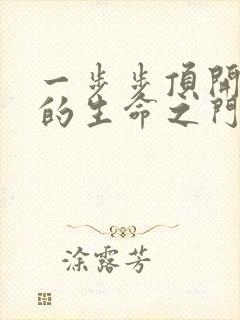 一步步頂開
的生命之門
涂露芳